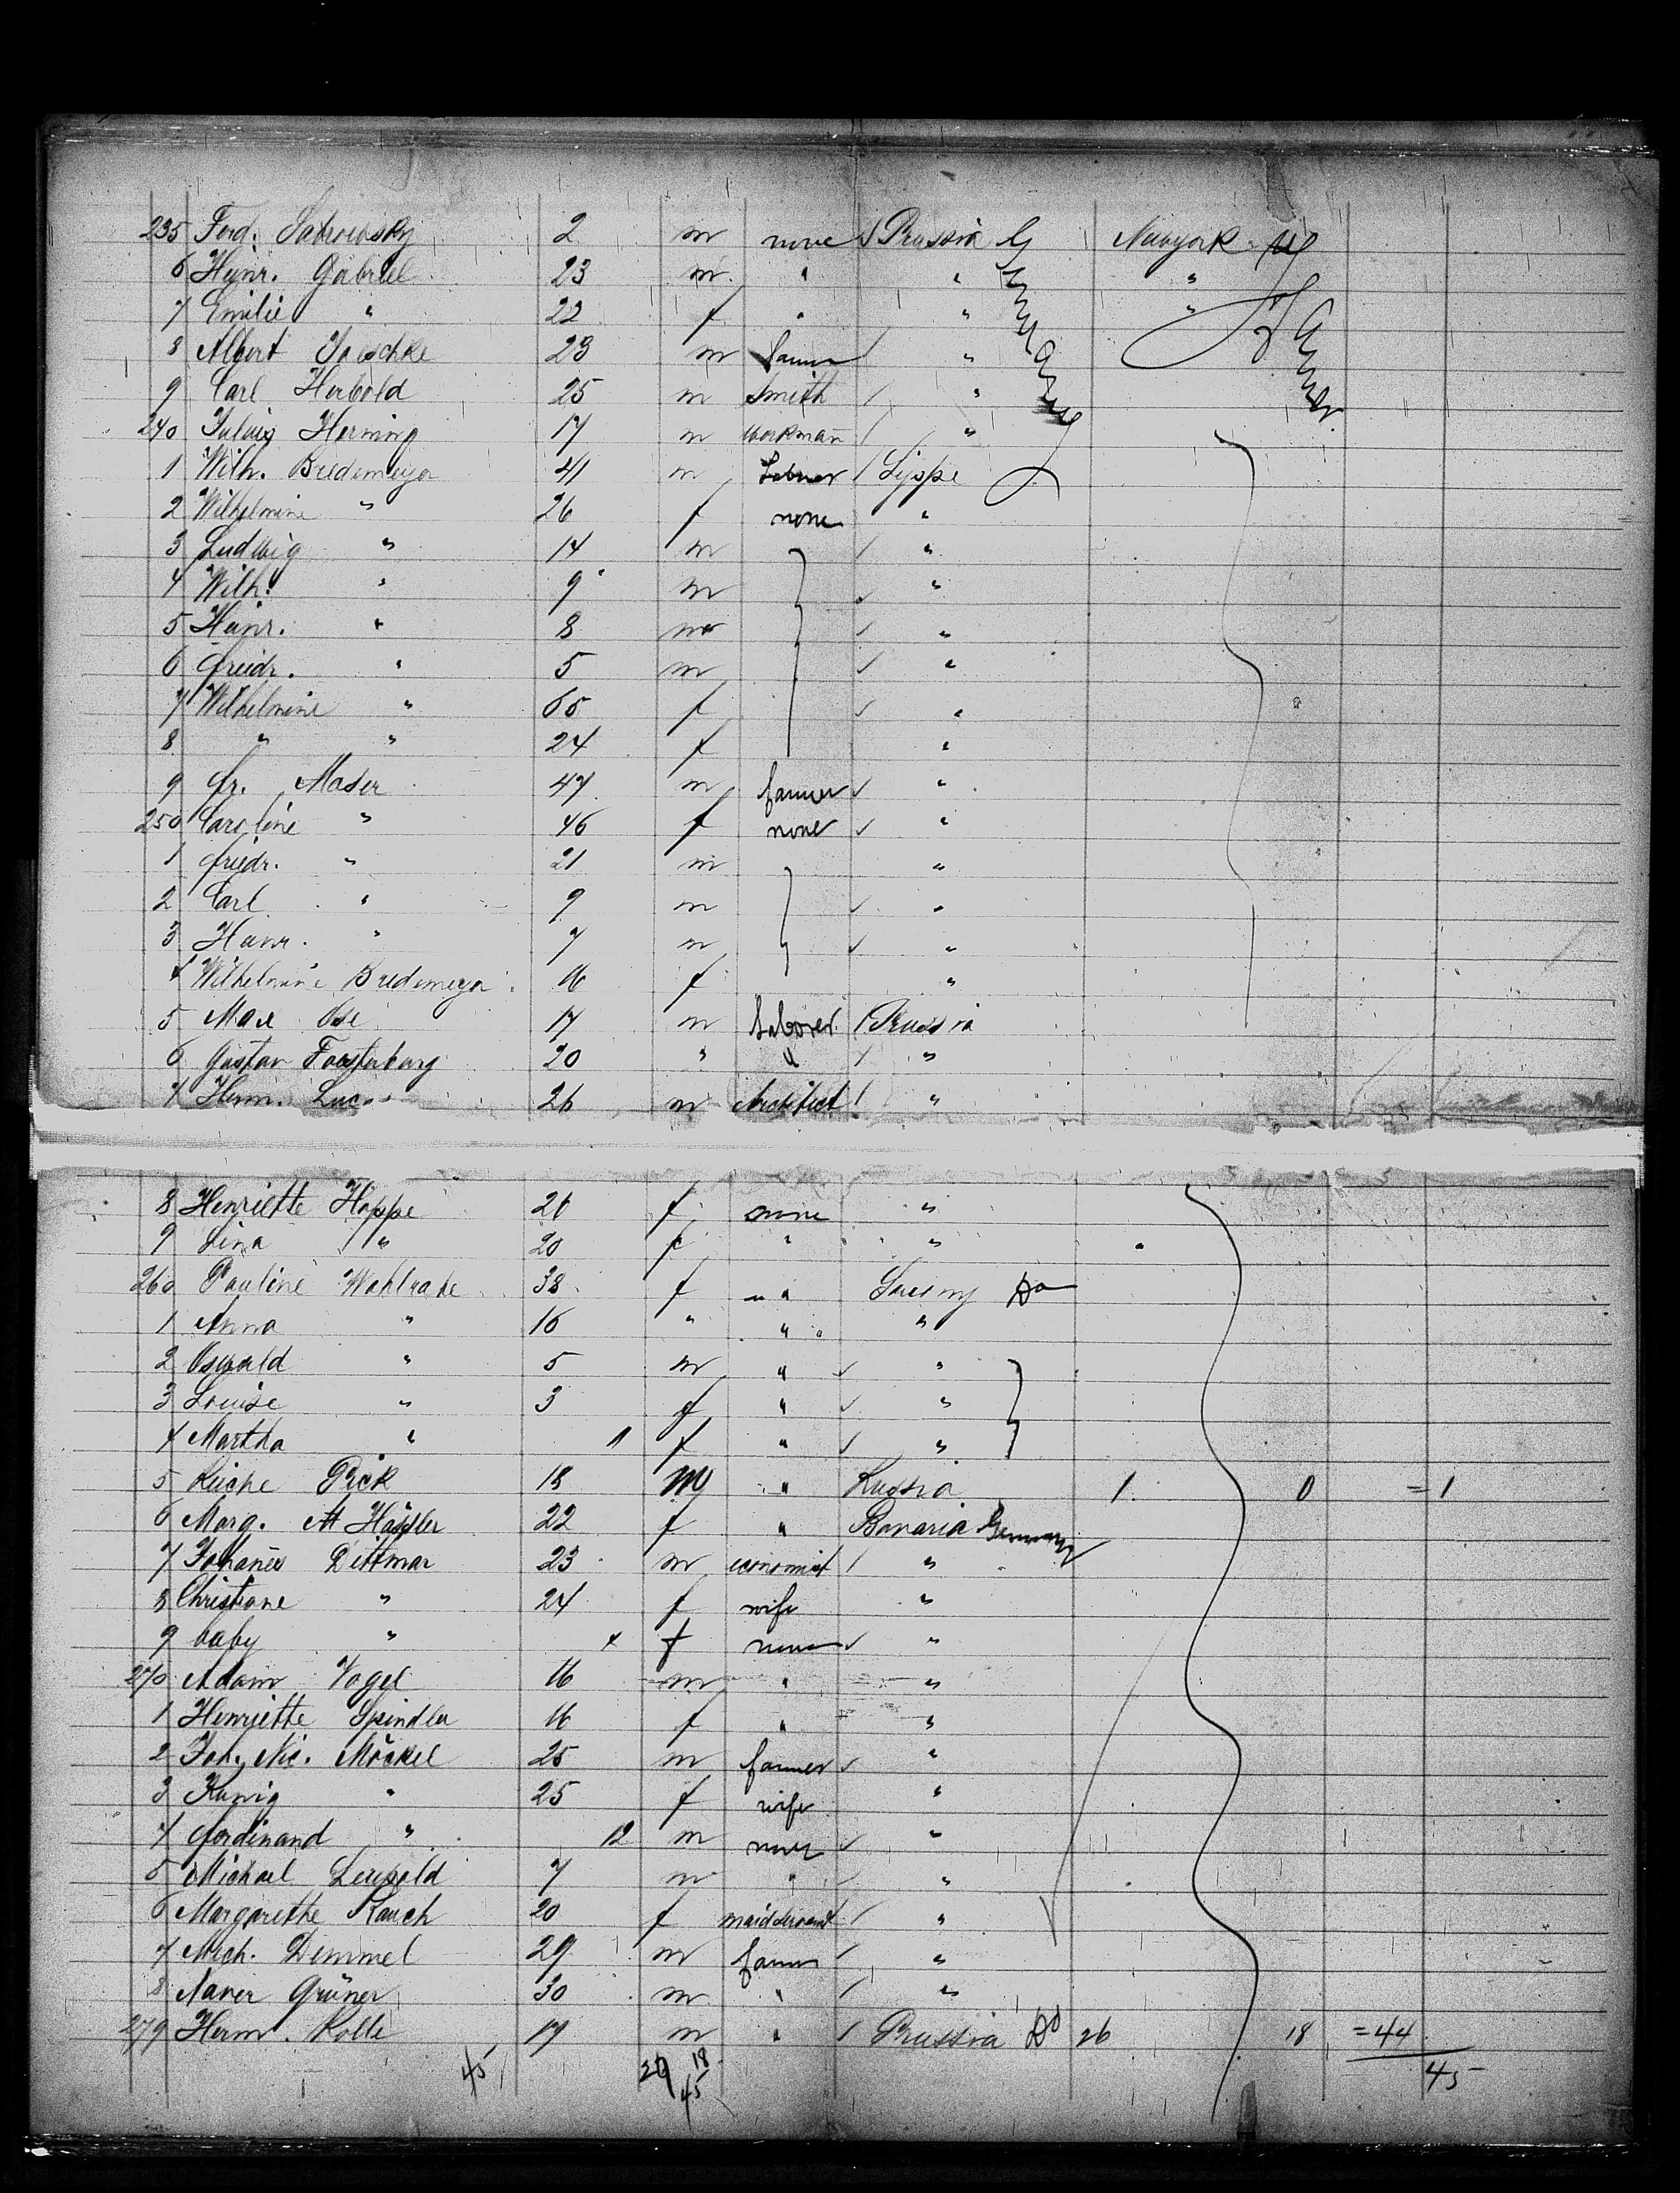 235 Ferd. 2 m none Prussia Newyork
6 Heinr. Gabriel 23 m " " "
7 Emilie " 22 f " " "
8 Albert Joeschke 23 m farmer "
9 Carl Herbold 25 m Smith "
240 Julius Herning 17 m workman "
Germany
1 Wilh. Bredemeyer 41 m Laborer Lippe
2 Wilhelmine " 26 f none "
3 Ludwig " 14 m "
4 Wilh. " 9 m "
5 Heinr. " 8 m "
6 Friedr. " 5 m "
7 Wilhelmine " 65 f "
8 " " 24 f "
9 Fr. Maser 47 m farmer "
250 Caroline " 46 f none "
1 Friedr. " 21 m "
2 Carl " 9 m "
3 Heinr. " 7 m "
4 Wilhelmine Bredemeyer 16 f "
5 Max Ose 17 m Laborer Prussia
6 Gustav 20 " " "
7 Herm. 26 m Architect "
8 Henriette Hoppe 26 f none "
9 Lina " 20 f " "
260 Pauline Wohlrabe 38 f " Do
1 Anna " 16 " " "
2 Oswald " 5 m " "
3 Louise " 3 f " "
4 Martha " f " "
5 Pick 18 m " Russia 1 0 = 1
6 Marg. 22 f " Bavaria Germany
7 Johanes Dittmar 23 m economist "
8 Christiane " 24 f wife "
9 baby " f none "
270 Adam Vogel 16 m " "
1 Henriette Spindler 16 f " "
2 Joh. Nic. Möckel 25 m farmer "
3 " 25 f wife "
4 Ferdinand " 12 m none "
5 Michael Leupold 7 m " "
6 Margarethe Rauch 20 f maidservant "
7 Mich. Demmel 29 m farmer "
8 Xaver Grüner 30 m " "
279 Herm. Rolle 17 m " Prussia Do 26 18 = 44
45 18 45 45